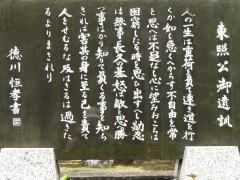 東照公御遺訓
人の一生は重荷を負て遠き道を行
くが如し急ぐべからず不自由を常
と思へば不足なし心に望おこらば
困窮したる時を思ひ出すべし堪忍
は無事長久の基怒は敵と思へ勝
つ事ばかり知りて負くる事を知ら
ざれば害其の身に至る己を責めて
人をせむるな及ばざるは過ぎた
るよりまされり
徳川恒孝書